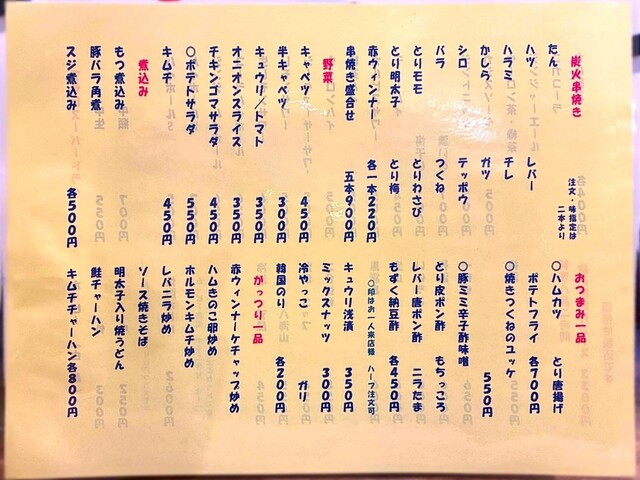 炭火串焼き
注文・味指定は
二本より
たん
ハツ レバー
ハラミ チレ
かしら ガツ
シロ テッポウ
バラ つくね
とりモモ とりわさび
とり明太子 とり梅
赤ウィンナー 各一本220円
串焼き盛合せ 五本900円
野菜
キャベツ 450円
半キャベツ 300円
キュウリ／トマト 350円
オニオンスライス 350円
チキンゴマサラダ 450円
○ポテトサラダ 550円
キムチ 450円
煮込み
もつ煮込み
豚バラ角煮
スジ煮込み 各500円
おつまみ一品
○ハムカツ とり唐揚げ
ポテトフライ 各700円
○焼きつくねのユッケ
550円
○豚ミミ辛子酢味噌
とり皮ポン酢 もちっころ
レバー唐ポン酢 ニラたま
もずく納豆酢 各450円
○印はお一人来店様 ハーフ注文可
キュウリ浅漬 350円
ミックスナッツ 300円
冷やっこ ガリ
韓国のり 各200円
がっつり一品
赤ウィンナーケチャップ炒め
ハムきのこ卵炒め
ホルモンキムチ炒め
レバニラ炒め
ソース焼きそば
明太子入り焼うどん
鮭チャーハン
キムチチャーハン各800円